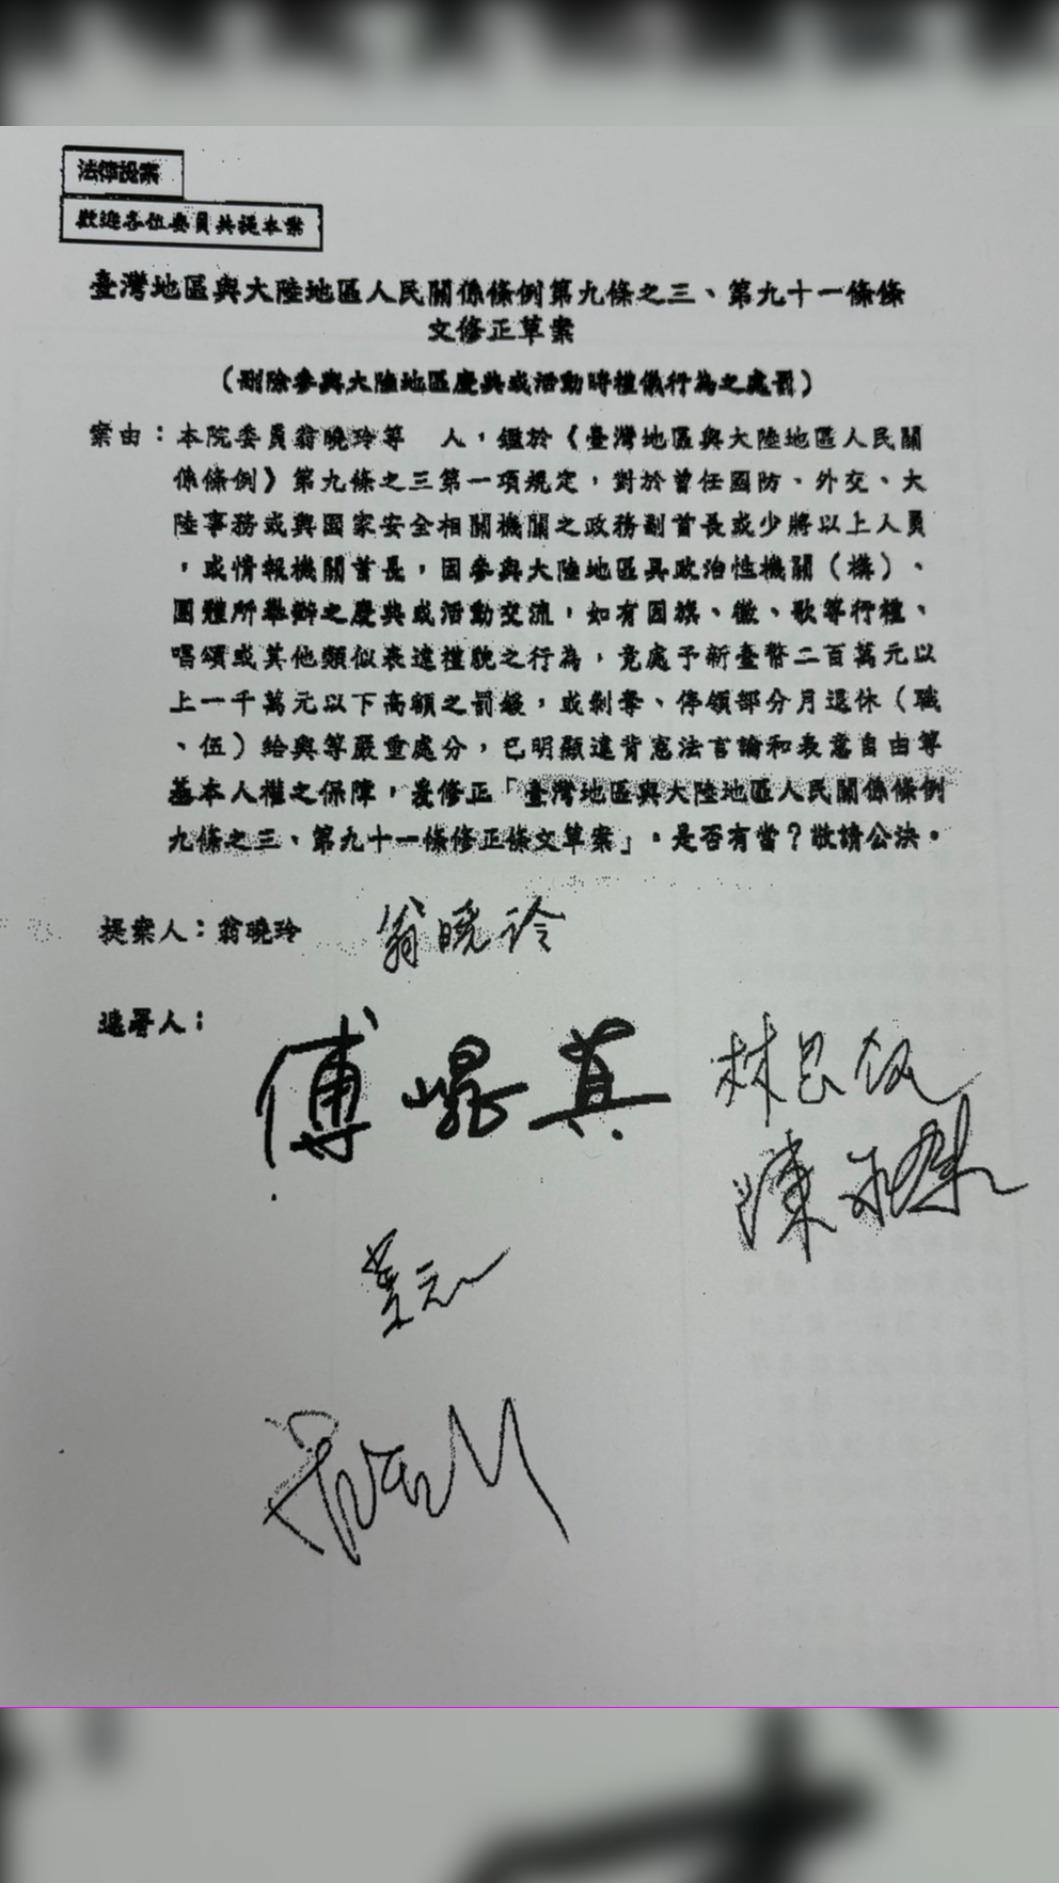 法律提案
歡迎各位委員共提本案
臺灣地區與大陸地區人民關係條例第九條之三、第九十一條條
文修正草案
（刪除參與大陸地區慶典或活動時禮儀行為之處罰）
案由：本院委員翁曉玲等　人，鑑於《臺灣地區與大陸地區人民關
係條例》第九條之三第一項規定，對於曾任國防、外交、大
陸事務或與國家安全相關機關之政務副首長或少將以上人員
，或情報機關首長，因參與大陸地區具政治性機關（構）、
團體所舉辦之慶典或活動交流，如有因旗、徽、歌等行禮、
唱頌或其他類似表達禮貌之行為，竟處予新臺幣二百萬元以
上一千萬元以下高額之罰鍰，或剝奪、停領部分月退休（職
、伍）給與等嚴重處分，已明顯違背憲法言論和表意自由等
基本人權之保障，爰修正「臺灣地區與大陸地區人民關係條例
九條之三、第九十一條修正條文草案」。是否有當？敬請公決。
提案人：翁曉玲 翁曉玲
連署人：
傅崐萁 林思銘
陳永